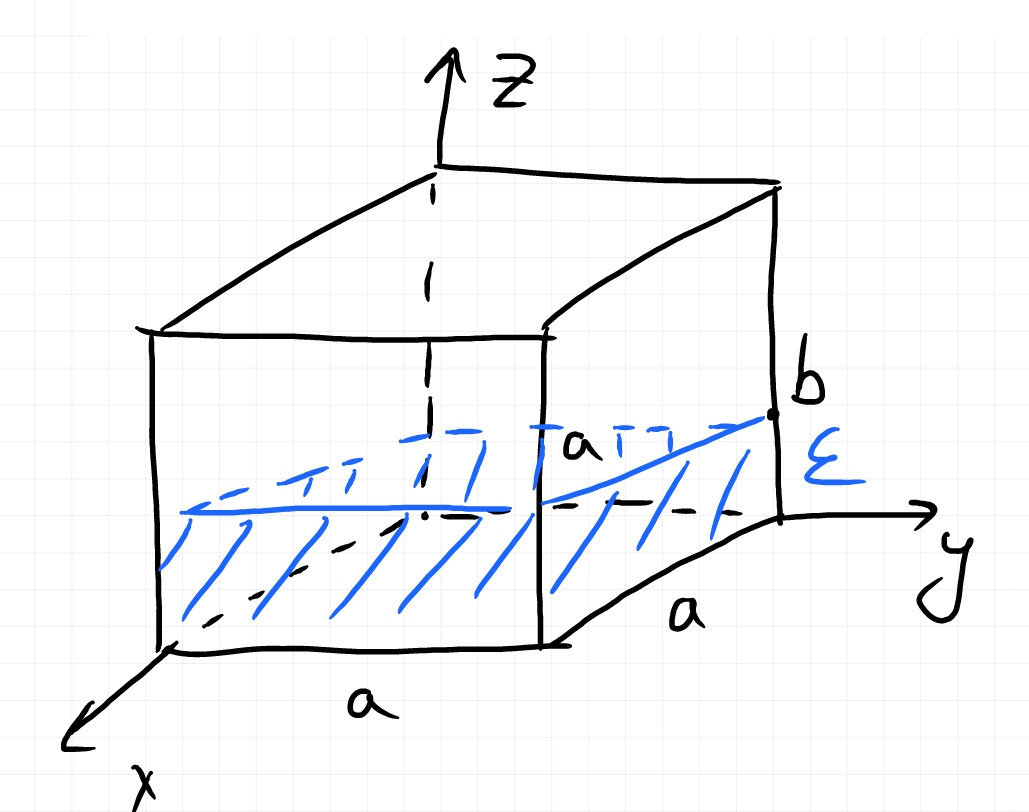 z
b
a
ε
y
a
a
x